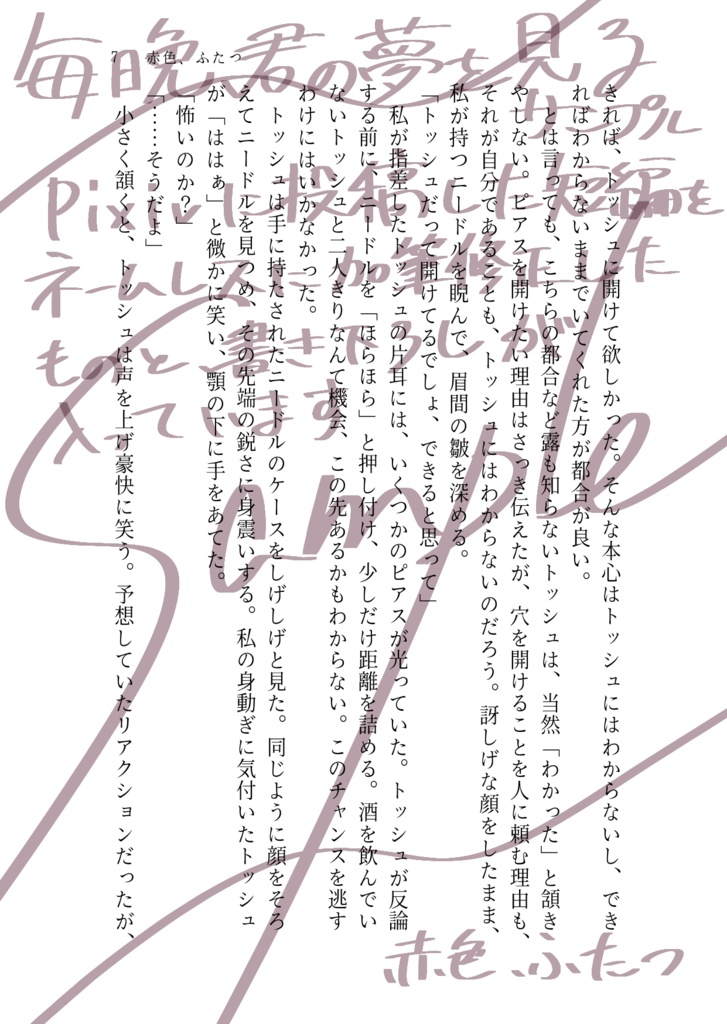 7　赤色、ふたつ
きれば、トッシュに開けて欲しかった。そんな本心はトッシュにはわからないし、でき
ればわからないままでいてくれた方が都合が良い。
　とは言っても、こちらの都合など露も知らないトッシュは、当然「わかった」と頷き
やしない。ピアスを開けたい理由はさっき伝えたが、穴を開けることを人に頼む理由も、
それが自分であることも、トッシュにはわからないのだろう。訝しげな顔をしたまま、
私が持つニードルを睨んで、眉間の皺を深める。
「トッシュだって開けてるでしょ、できると思って」
　私が指差したトッシュの片耳には、いくつかのピアスが光っていた。トッシュが反論
する前に、ニードルを「ほらほら」と押し付け、少しだけ距離を詰める。酒を飲んでい
ないトッシュと二人きりなんて機会、この先あるかもわからない。このチャンスを逃す
わけにはいかなかった。
　トッシュは手に持たされたニードルのケースをしげしげと見た。同じように顔をそろ
えてニードルを見つめ、その先端の鋭さに身震いする。私の身動ぎに気付いたトッシュ
が「ははぁ」と微かに笑い、顎の下に手をあてた。
「怖いのか？」
「……そうだよ」
　小さく頷くと、トッシュは声を上げ豪快に笑う。予想していたリアクションだったが、
毎晩、君の夢を見る
サンプル
pixivに投稿した短編を
ネームレスに加筆修正した
ものと、書き下ろしが
入っています
Sample
赤色、ふたつ